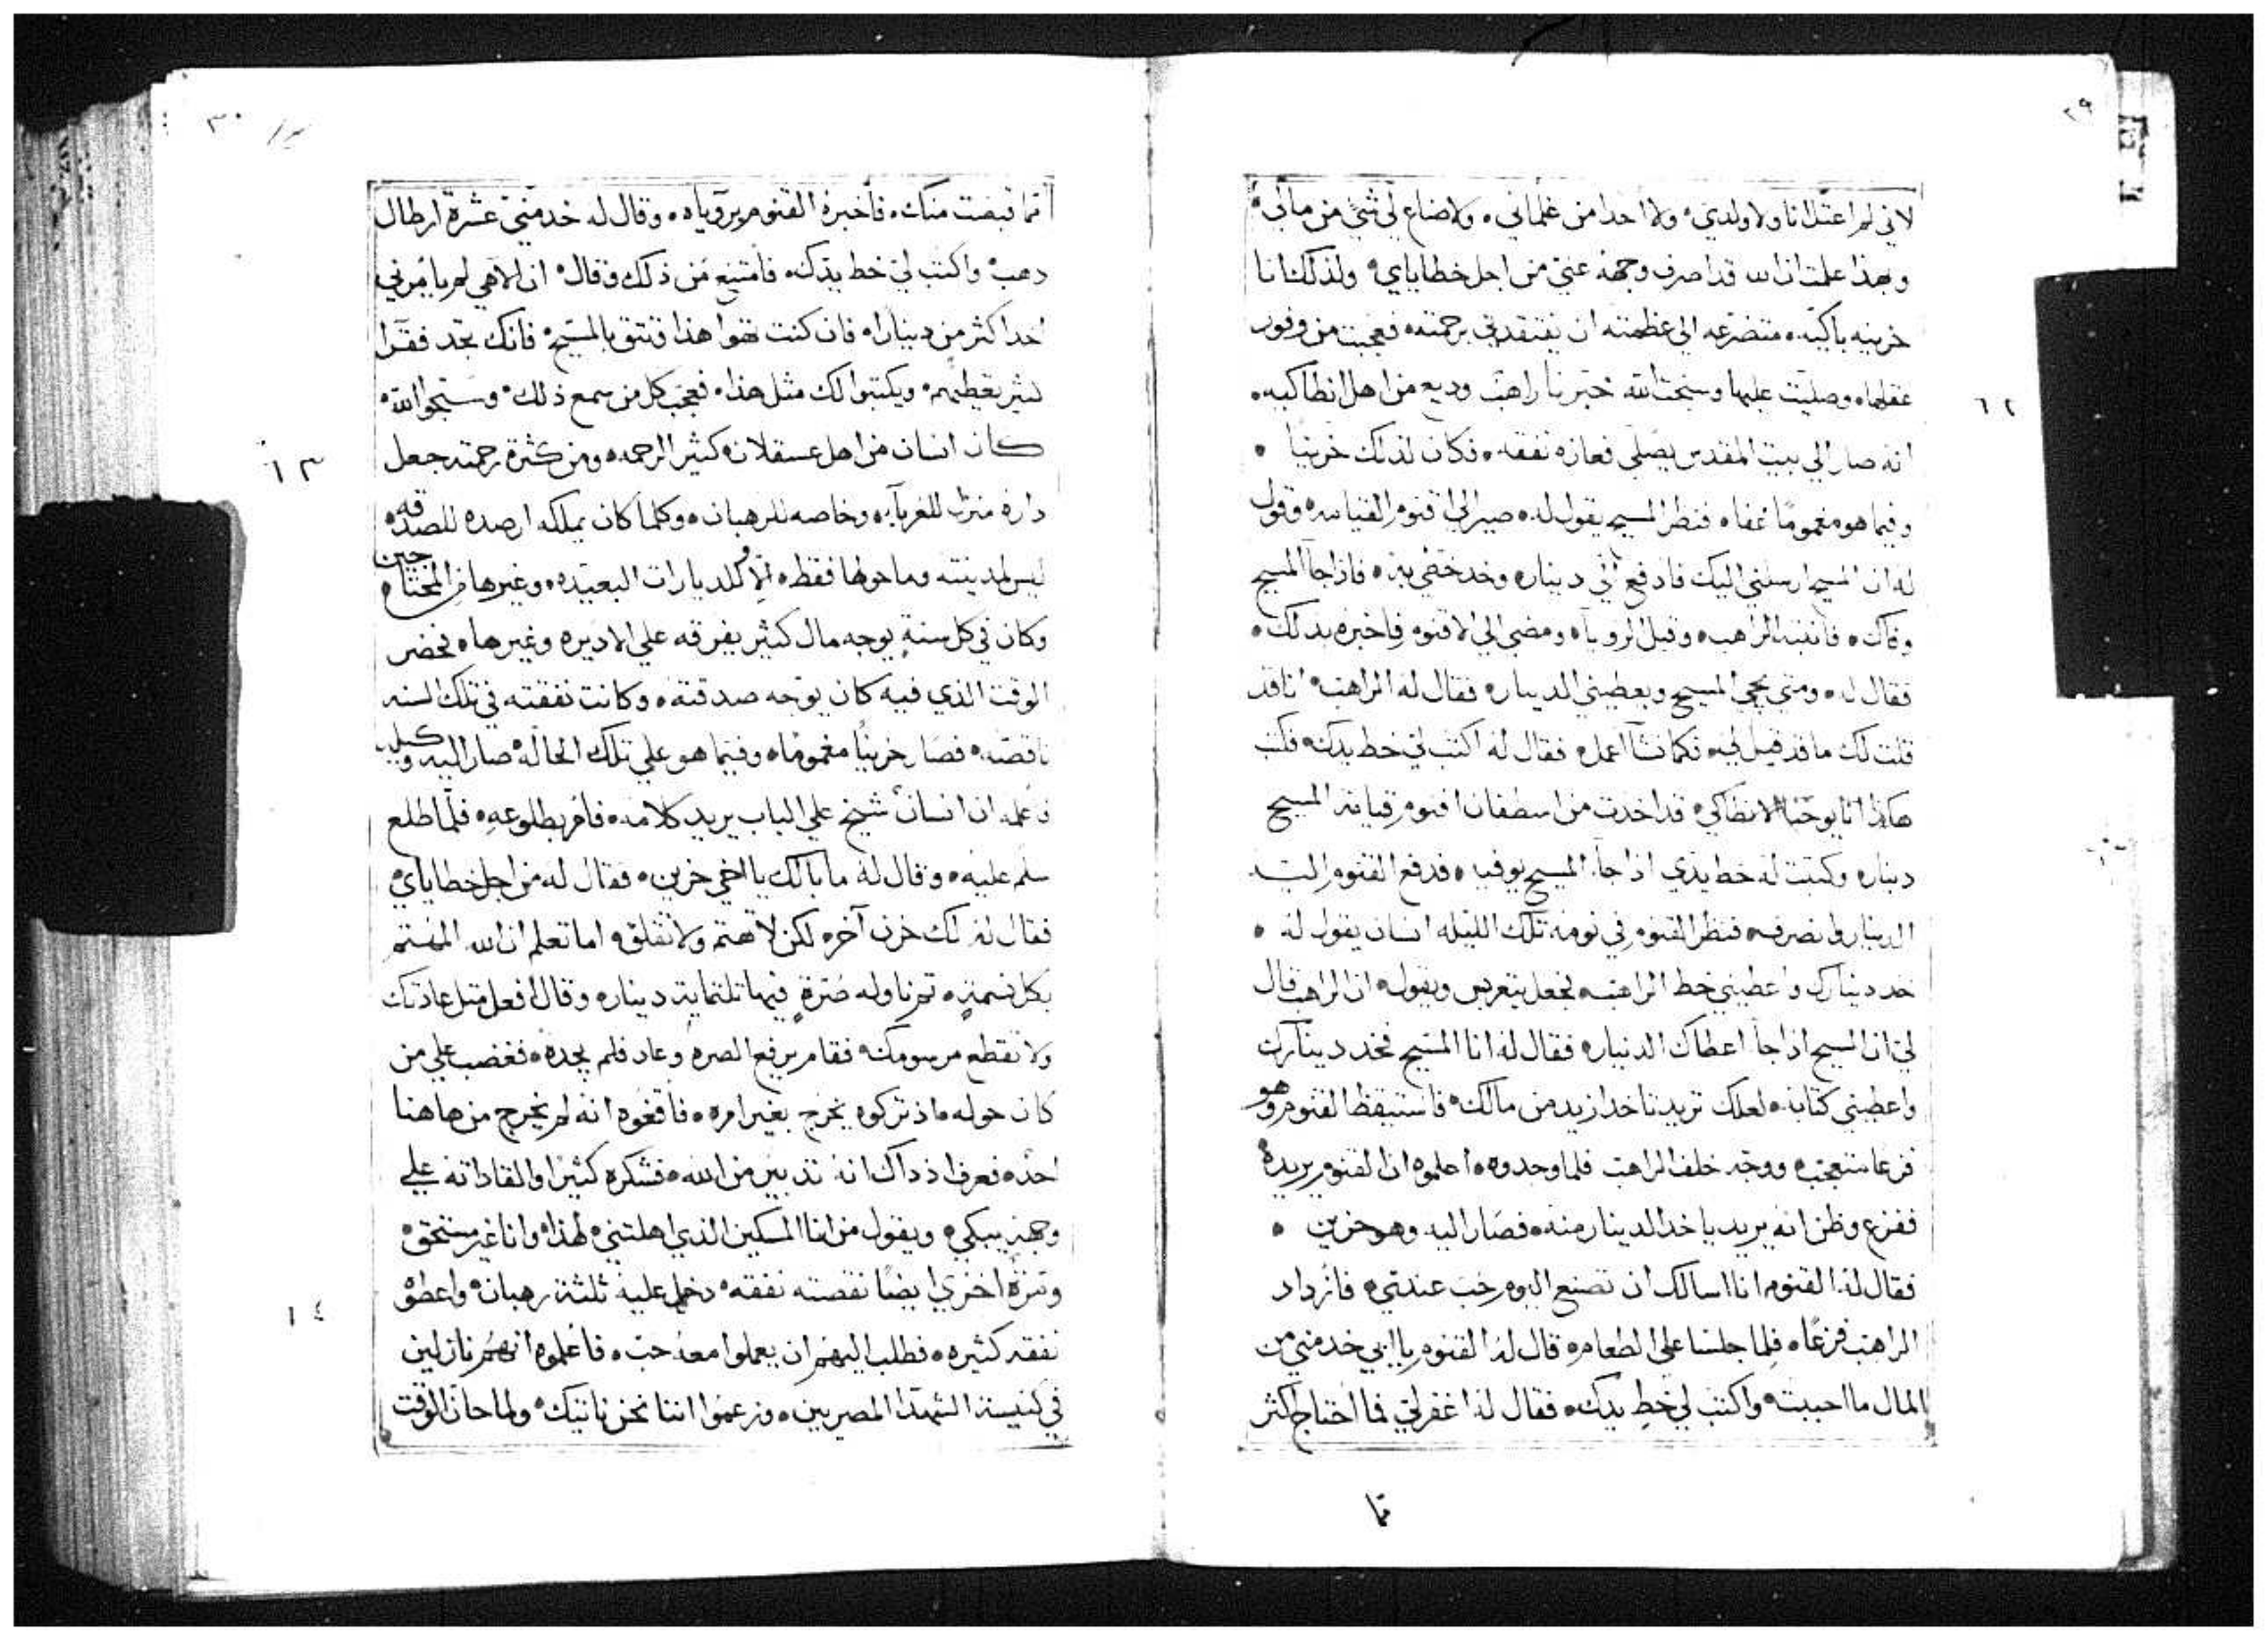 ٢٩
لاني لم اعتل انا ولا ولدي ٠ ولا احدا من غلماني ٠ ولا ضاع لي شي من مالي ٠
وبهذا علمت ان الله قد اصرف وجهه عني من اجل خطاياي ٠ ولذلك انا
حزينه باكيه ٠ متضرعه الي عظمته ان يفتقدني برحمته ٠ فعجبت من وفور
عقلها ٠ وصليت عليها وسبحت الله خبرنا راهب وديع من اهل انطاكيه ٠
١٢
انه صار الي بيت المقدس يصلي فعازه نفقه ٠ فكان لذلك حزينا ٠
وفيما هو مغموما غفا ٠ فنظر المسيح يقول له ٠ صير الي اقنوم القيامه ٠ وقول
له ان المسيح ارسلني اليك فادفع لي دينار ٠ وخد خطي به ٠ فاذا جا المسيح
وفاك ٠ فانتبه الراهب ٠ وقبل الرويا ٠ ومضي الي الاقنوم فاخبره بدلك ٠
فقال له ٠ ومتي يجي المسيح ويعطيني الدينار ٠ فقال له الراهب ٠ انا قد
قلت لك ما قد قيل لي ٠ فكما تشا اعمل ٠ فقال له اكتب لي خط يدك ٠ فكتب
هكذا انا يوحنا الانطاكي ٠ قد اخدت من اسطفان اقنوم قيامة المسيح
دينار ٠ وكتبت له خط يدي اذا جا المسيح يوفيه ٠ فدفع القنوم اليه
الدينار وانصرف ٠ فنظر القنوم في نومه تلك الليله انسان يقول له ٠
خد دينارك واعطيني خط الراهب ٠ فجعل يتعربص ويقول ٠ ان الراهب قال
لي ان المسيح اذا جا اعطاك الدينار ٠ فقال له انا المسيح فخد دينارك
واعطيني كتابه ٠ لعلك تريد تاخد ازيد من مالك ٠ فاستيقظ القنوم وهو
فزعا متعجب ٠ ووجه خلف الراهب فلما وجدوه ٠ اعلموه ان القنوم يريده ٠
ففزع وظن انه يريد ياخد الدينار منه ٠ فصار اليه وهو حزين ٠
فقال له القنوم انا اسالك ان تصنع اليوم حب عندي ٠ فازداد
الراهب فزعا ٠ فلما جلسا علي الطعام ٠ قال له القنوم يا ابي خد مني من
المال ما احببت ٠ واكتب لي خط يدك ٠ فقال له اغفر لي فما احتاج اكثر
مما
٣٠
مما قبضت منك ٠ فاخبره القنوم برويا ٠ وقال له خد مني عشرة ارطال
دهب ٠ واكتب لي خط يدك ٠ فامتنع من ذلك وقال ٠ ان الاهي لم يامرني
اخد اكثر من دينار ٠ فان كنت تهوا هذا فتتق بالمسيح ٠ فانك تجد فقرا
كثير تعطيهم ٠ ويكتبوا لك مثل هذا ٠ فعجب كل من سمع ذلك ٠ وسبحوا الله ٠
١٣
كان انسان من اهل عسقلان ٠ كثير الرحمه ٠ ومن كثرة رحمته جعل
داره منزل للغربا ٠ وخاصه للرهبان ٠ وكلما كان يملكه ارصده للصدقه ٠
ليس لمدينته وما حولها فقط ٠ الا وللديارات البعيده ٠ وغيرها من المحتاجين ٠
وكان في كل سنة يوجه مال كثير يفرقه علي الاديره وغيرها ٠ فحضر
الوقت الذي فيه كان يوجه صدقته ٠ وكانت نفقته في تلك السنه
ناقصه ٠ فصار حزينا مغموما ٠ وفيما هو علي تلك الحاله ٠ صار اليه وكيله
فاعلمه ان انسان شيخ علي الباب يريد كلامه ٠ فامر بطلوعه ٠ فلما طلع
سلم عليه ٠ وقال له ما بالك يا اخي حزين ٠ فقال له من اجل خطاياي ٠
فقال له لك حزن آخر ٠ لكن لا تهتم ولا تقلق ٠ اما تعلم ان الله المهتم
بكل نسمة ٠ تم ناوله صرة فيها تلتماية دينار ٠ وقال افعل متل عادتك
ولا تقطع مرسومك ٠ فقام يرفع الصره وعاد فلم يجده ٠ فغضب علي من
كان حوله ٠ اذ تركوه يخرج بغير امره ٠ فاقنعوه انه لم يخرج من هاهنا
احد ٠ فعرف اذ ذاك انه تدبير من الله ٠ فشكره كثيرا والقا ذاته علي
وجهه يبكي ٠ ويقول من انا المسكين الذي اهلتني لهذا ٠ وانا غير مستحق ٠
١٤
ومرة اخري ايضا نقصته نفقه ٠ دخل عليه ثلثة رهبان ٠ واعطوه
نفقه كثيره ٠ فطلب اليهم ان يعملوا معه حب ٠ فاعلموه انهم نازلين
في كنيسة الشهدا المصريين ٠ وزعموا اننا نحن ناتيك ٠ ولما حان الوقت